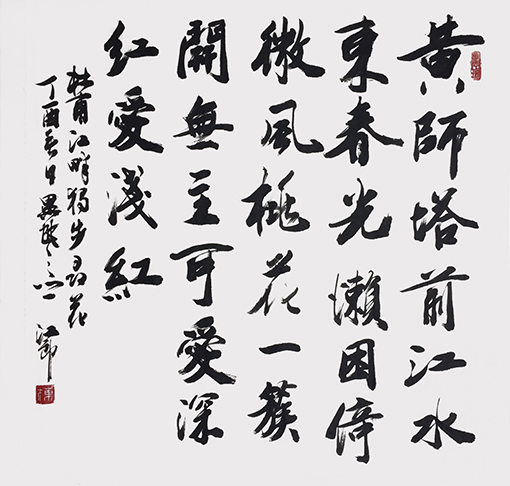 黄師塔前江水
東春光懶困倚
微風桃花一簇
開無主可愛深
紅愛淺紅
杜甫江畔獨步尋花
丁酉春日